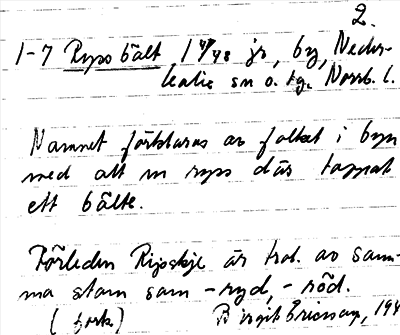 2.
1-7 Ryssbält, 1 47/48 jr, by, Neder-
kalix sn o. tg. Norrb. l.
Namnet förklaras av folket i byn
med att en ryss där tappat
ett bälte.
Förleden är trol. av sam-
ma stam som -ryd, -röd.
(fork) Birgit Ericson, 194